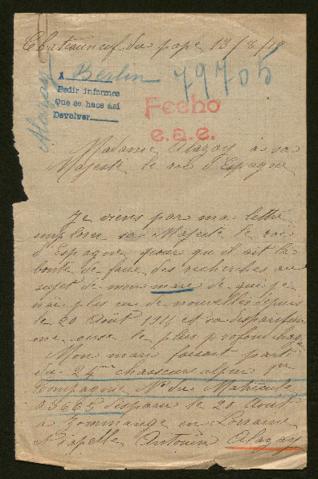 Chateauneuf du pape 13/8/18
Alazay
A Berlin
Pedir informes
Que se hace así
Devolver
79705
Fecho
e.a.e.
Madame Alazay a sa
Majesté le roi d'Espagne
Je viens par ma lettre
implorer sa Majesté le roi
d'Espagne pour qu'il ait la
bonté de faire des recherches au
sujet de mon mari de qui je
n'ai plus eu de nouvelles depuis
le 20 Août 1914 et sa disparition
me cause le plus profond chagrin
Mon mari faisait parti
du 24me chasseurs alpin 7e
Compagnie No du Matricule
05665 disparu le 20 Août
a Gommange en Lorraine
N Antonin Alazay